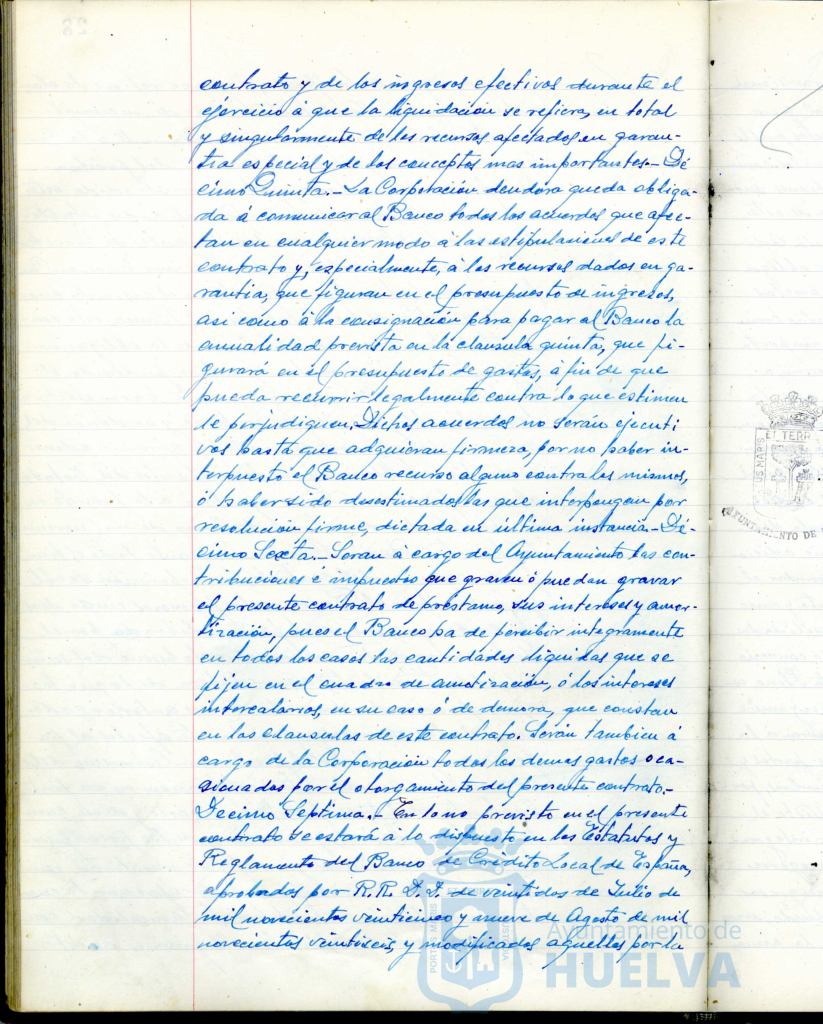 contrato y de los ingresos efectivos durante el
ejercicio á que la liquidación se refiera, en total
y singularmente de los recursos afectados en garan-
tia especial y de los conceptos mas importantes.- Dé
cimo Quinta.- La Corporación deudora queda obliga-
da á comunicar al Banco todos los acuerdos que afec-
tan en cualquier modo á las estipulaciones de este
contrato y, especialmente, á los recursos dados en ga-
rantia, que figuran en el presupuesto de ingresos,
asi como á la consignación para pagar al Banco la
anualidad prevista en la clausula quinta, que fi-
gurará en el presupuesto de gastos, á fin de que
pueda recurrir legalmente contra lo que estimen
le perjudiquen. Dichos acuerdos no serán ejecuti
vos hasta que adquieran firmeza, por no haber in-
terpuesto el Banco recurso alguno contra los mismos,
ó haber sido desestimados los que interpongan por
resolución firme, dictada en última instancia.- Dé-
cimo Sexta.- Seran á cargo del Ayuntamiento las con-
tribuciones é impuestos que graven ó puedan gravar
el presente contrato de préstamo, sus intereses y amor-
tización, pues el Banco ha de percibir integramente
en todos los casos las cantidades liquidas que se
fijen en el cuadro de amotización, ó los intereses
intercalarios, en su caso ó de demora, que constan
en las clausulas de este contrato. Serán tambien á
cargo de la Corporación todos los demas gastos oca-
sionados por el otorgamiento del presente contrato.-
Decimo Septima.- En lo no previsto en el presente
contrato se estará á lo dispuesto en los Estatutos y
Reglamento del Banco de Crédito Local de España,
aprobados por R.R. D.D. de veintidos de Julio de
mil novecientos veinticinco y nueve de Agosto de mil
novecientos veintiseis, y modificados aquellos por la
Ayuntamiento de
HUELVA